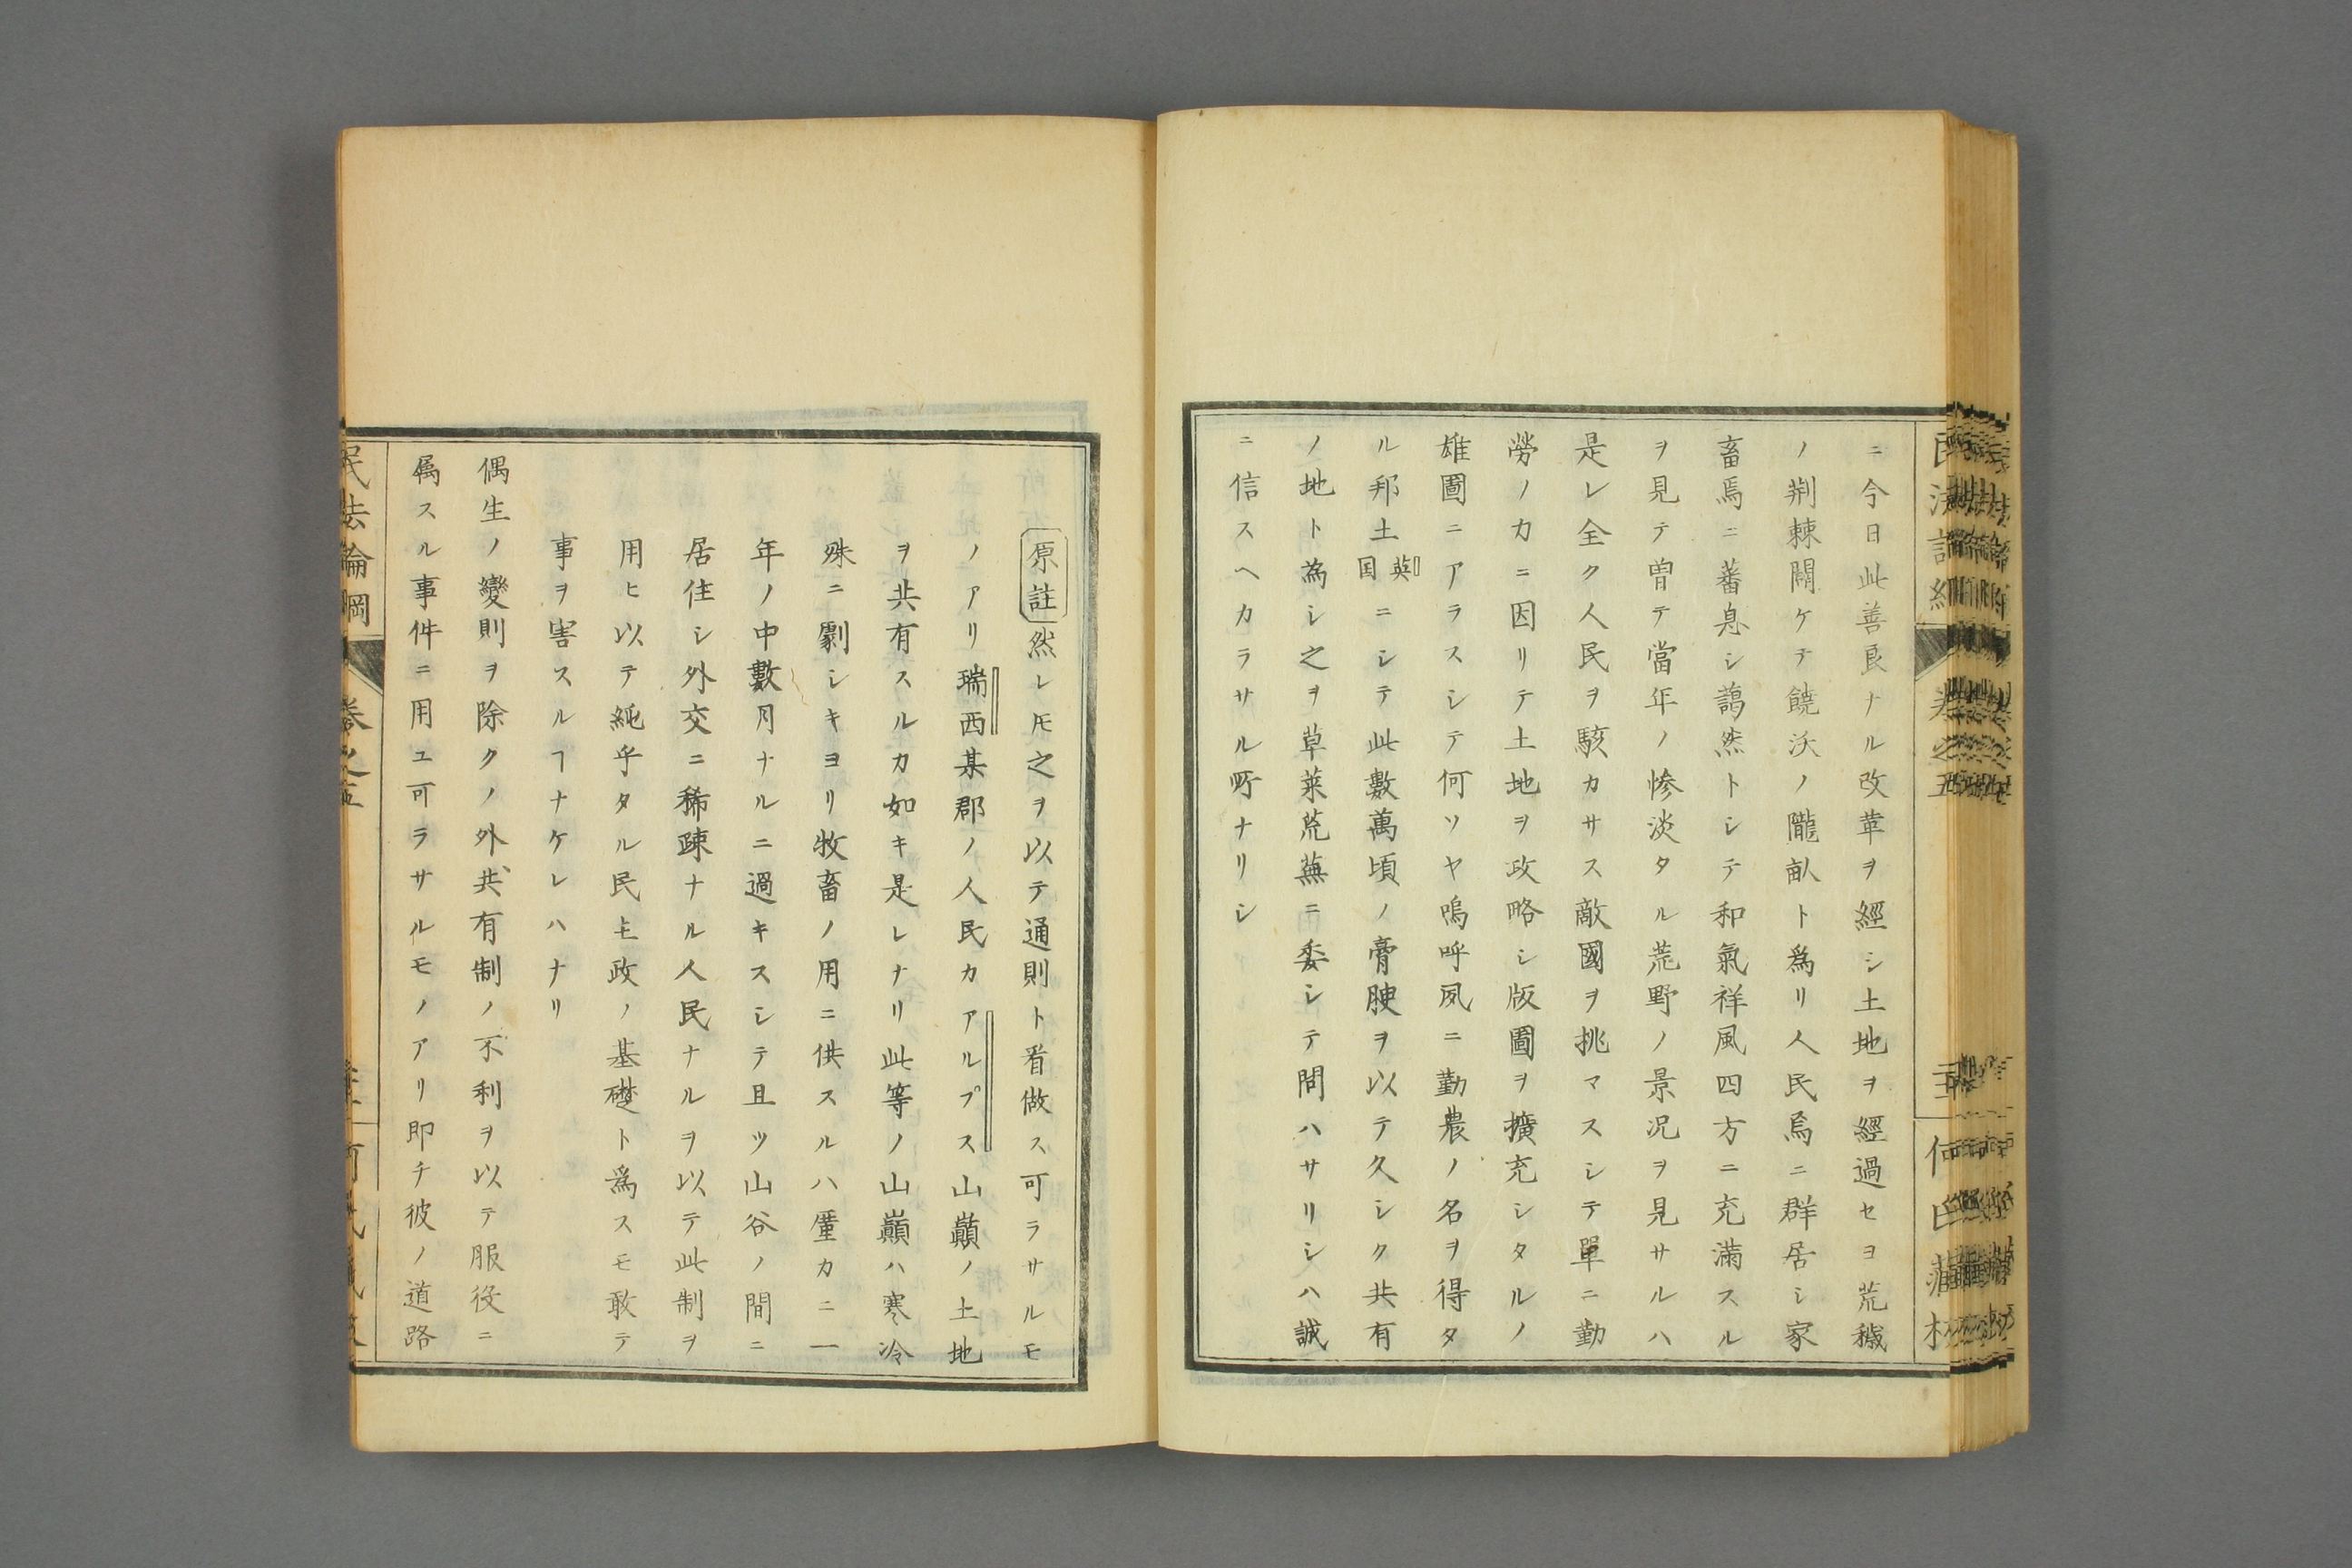 ニ今日此善良ナル改革ヲ經シ土地ヲ經過セヨ荒穢
ノ荆棘闢ケテ饒沃ノ隴畝ト爲リ人民焉ニ群居シ家
畜焉ニ蕃息シ藹然トシテ和氣祥風四方ニ充滿スル
ヲ見テ曽テ當年ノ惨淡タル荒野ノ景况ヲ見サルハ
是レ全ク人民ヲ駭カサス敵國ヲ挑マスシテ單ニ勤
勞ノ力ニ因リテ土地ヲ政略シ版圖ヲ擴充シタルノ
雄圖ニアラスシテ何ソヤ嗚呼夙ニ勸農ノ名ヲ得タ
ル邦土英国ニシテ此數萬頃ノ膏腴ヲ以テ久シク共有
ノ地ト為シ之ヲ草莱荒蕪ニ委シテ問ハサリシハ誠
ニ信スヘカラサル所ナリシ
原註然レ𪜈之ヲ以テ通則ト看做ス可ラサルモ
ノアリ瑞西某郡ノ人民カアルプス山巓ノ土地
ヲ共有スルカ如キ是レナリ此等ノ山巓ハ寒冷
殊ニ劇シキヨリ牧畜ノ用ニ供スルハ厪カニ一
年ノ中數月ナルニ過キスシテ且ツ山谷ノ間ニ
居住シ外交ニ稀疎ナル人民ナルヲ以テ此制ヲ
用ヒ以テ純乎タル民主政ノ基礎ト爲スモ敢テ
事ヲ害スルヿナケレハナリ
偶生ノ變則ヲ除クノ外共有制ノ不利ヲ以テ服役ニ
屬スル事件ニ用ユ可ラサルモノアリ即チ彼ノ道路
民法論綱
卷之五